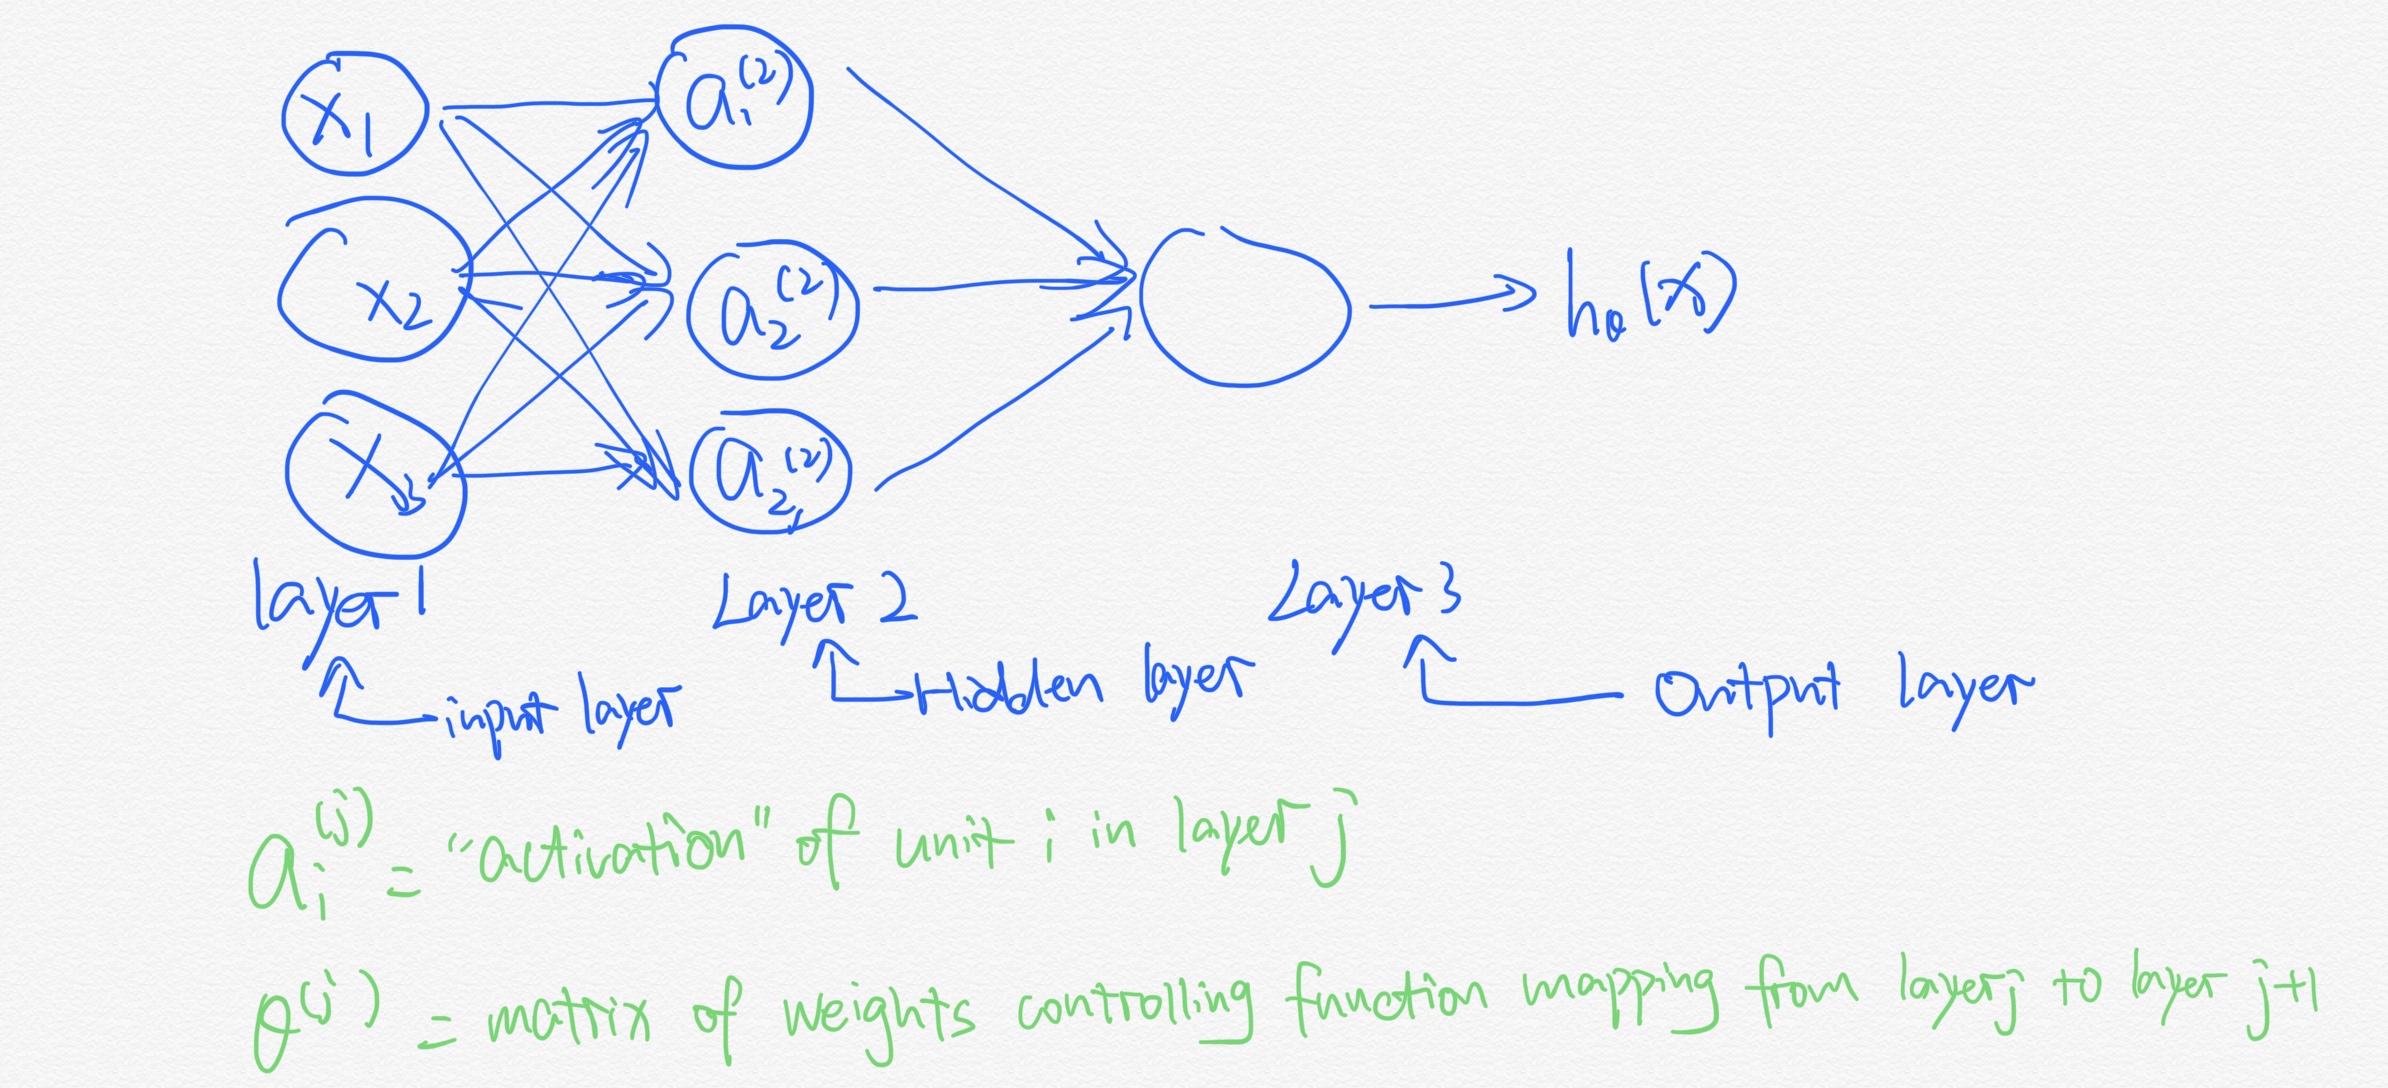 x₁
a₁⁽²⁾
x₂
a₂⁽²⁾
h_θ(x)
x₃
a₂⁽²⁾
layer 1
Layer 2
Layer 3
input layer
Hidden layer
Output layer
aᵢ⁽ʲ⁾ = "activation" of unit i in layer j
θ⁽ʲ⁾ = matrix of weights controlling function mapping from layer j to layer j+1